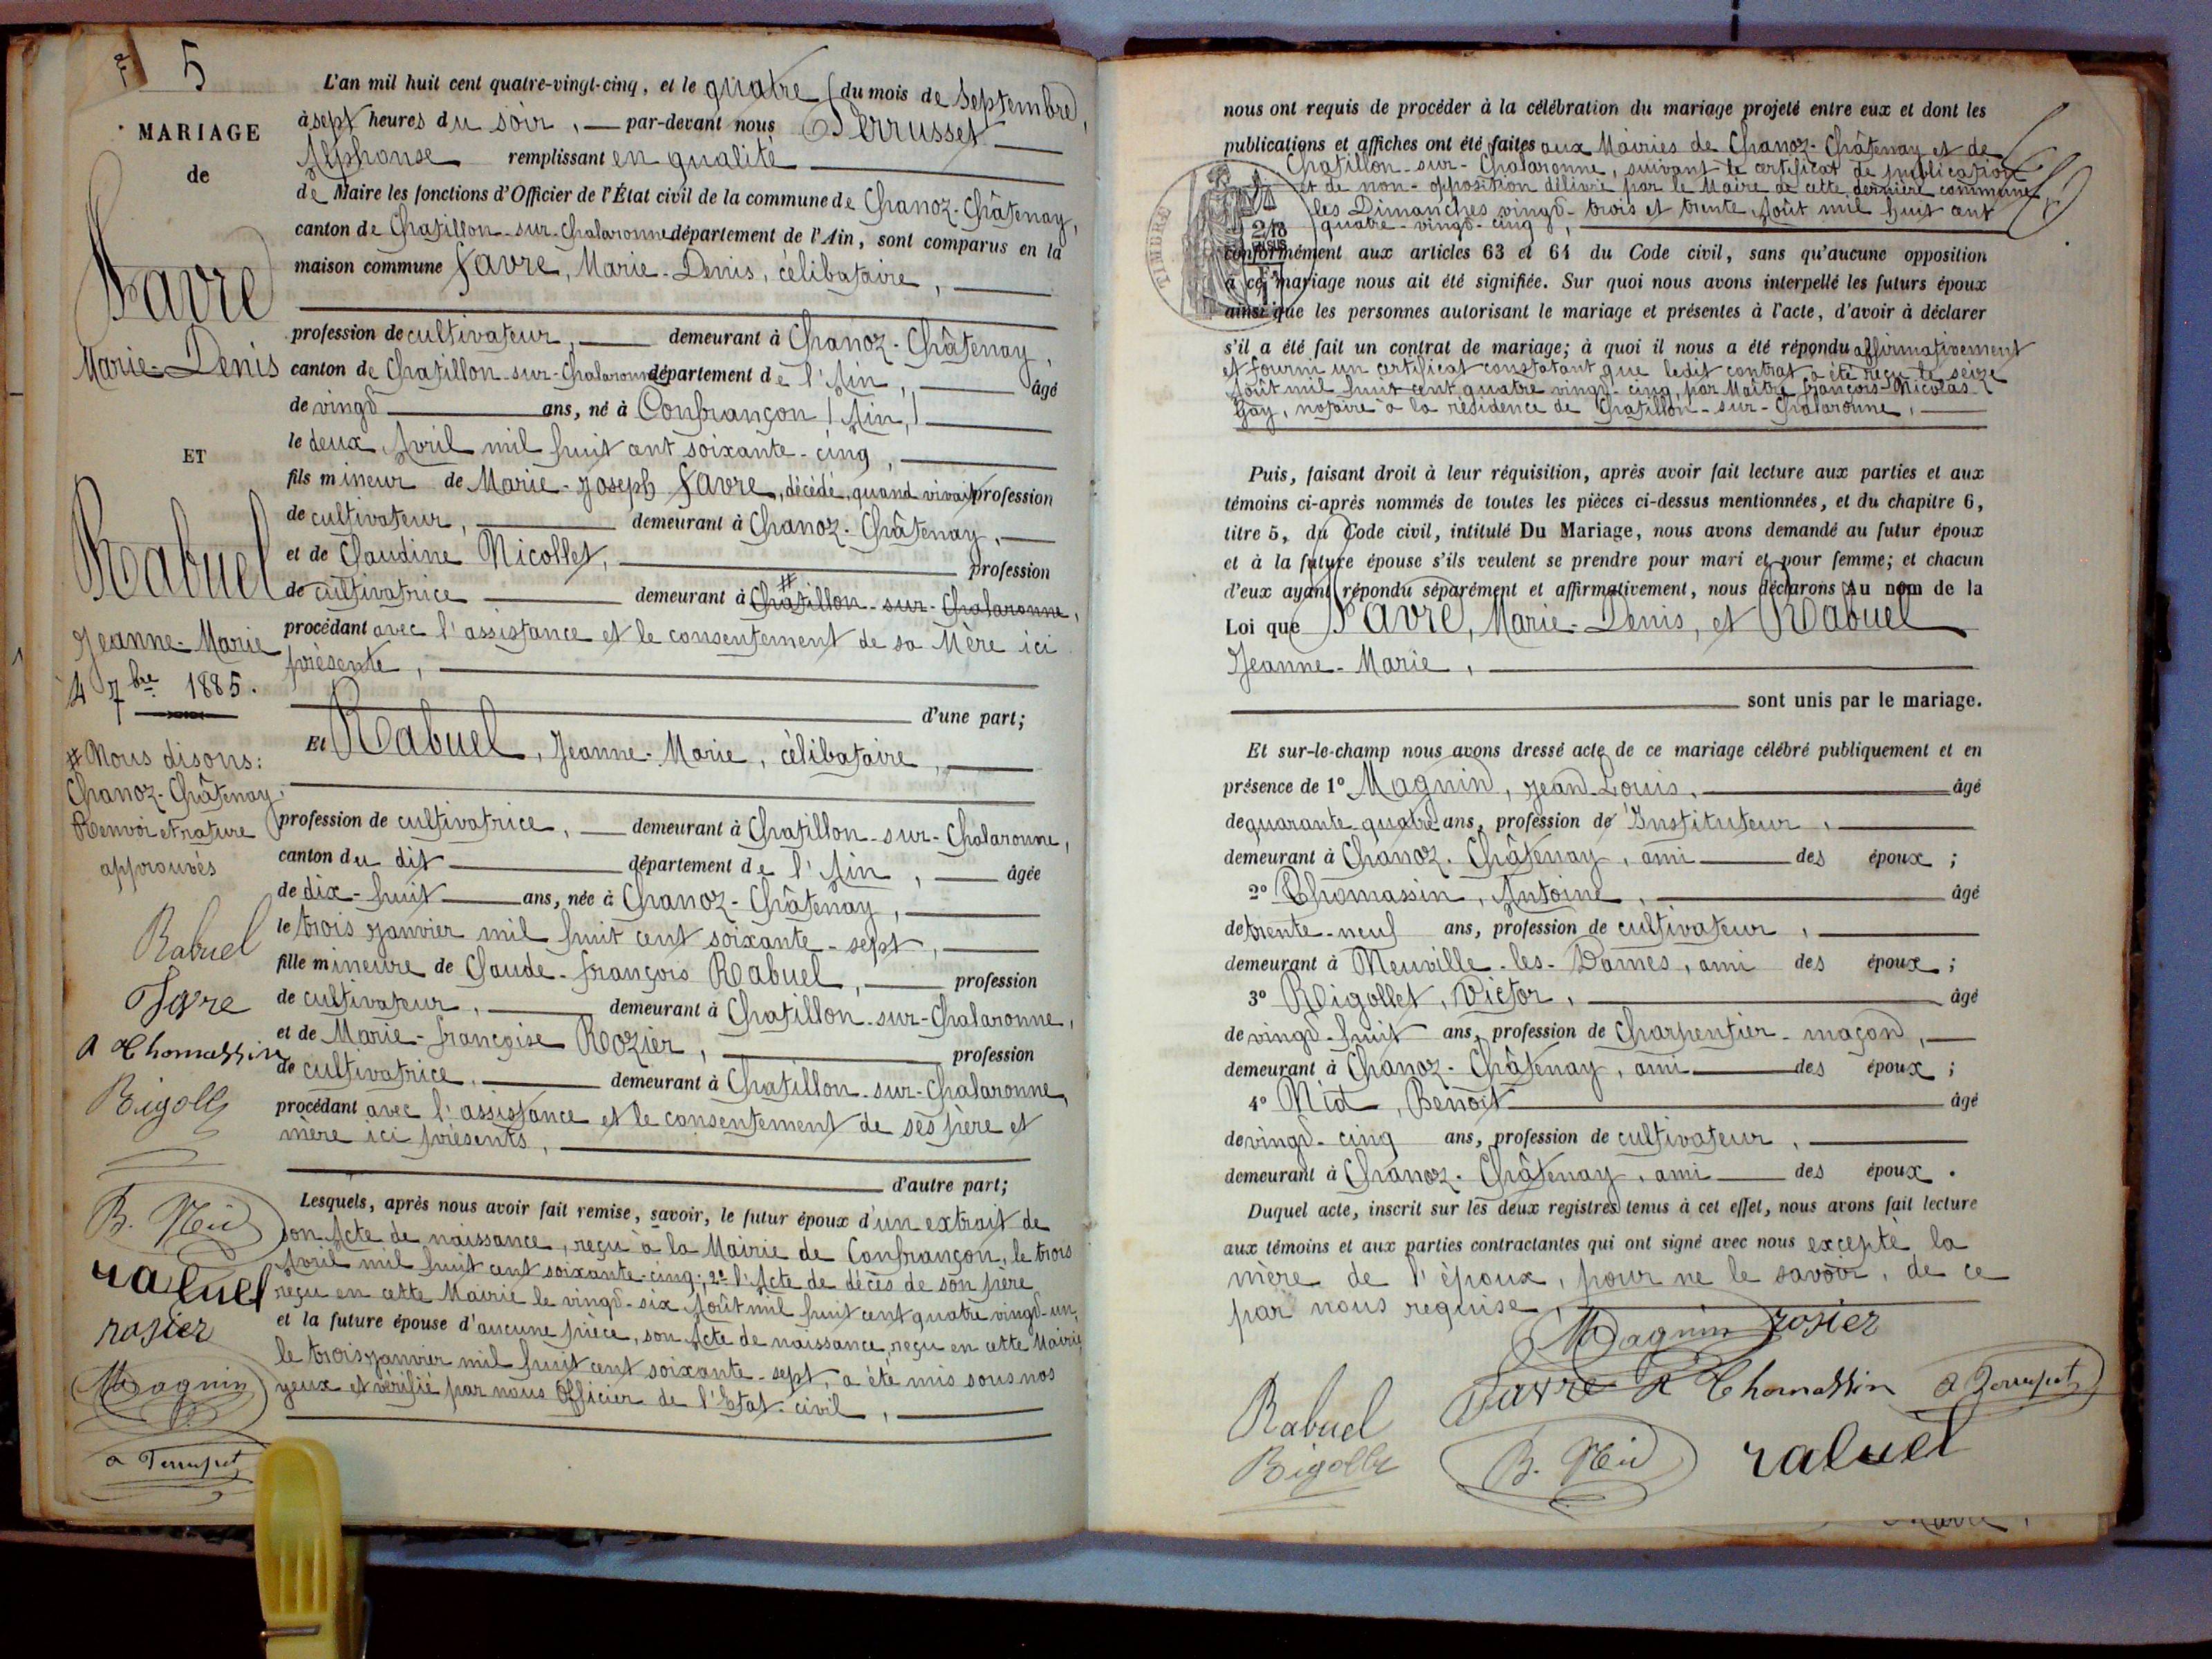 N° 5
MARIAGE
de
Favre
Marie-Denis
ET
Rabuel
Jeanne-Marie
4 7bre 1885.
# Nous disons:
Chanoz-Châtenay.
Renvoi et rature
approuvés
Rabuel
Favre
A Thomassin
Rigollet
B. Nid
rabuel
rosier
Magnin
a Perrusset
L'an mil huit cent quatre-vingt-cinq, et le quatre du mois de Septembre,
à sept heures du soir, par-devant nous Perrusset
Alphonse remplissant en qualité
de Maire les fonctions d'Officier de l'État civil de la commune de Chanoz-Châtenay,
canton de Chatillon-sur-Chalaronne département de l'Ain, sont comparus en la
maison commune Favre, Marie-Denis, célibataire,
profession de cultivateur, demeurant à Chanoz-Châtenay,
canton de Chatillon-sur-Chalaronne département de l'Ain, âgé
de vingt ans, né à Confrançon (Ain,)
le deux Avril mil huit cent soixante-cinq,
fils mineur de Marie-Joseph Favre, décédé, quand vivait profession
de cultivateur, demeurant à Chanoz-Châtenay,
et de Claudine Nicollet, profession
de cultivatrice demeurant à # Châtillon-sur-Chalaronne,
procédant avec l'assistance et le consentement de sa Mère ici
présente,
d'une part;
Et Rabuel, Jeanne-Marie, célibataire,
profession de cultivatrice, demeurant à Chatillon-sur-Chalaronne,
canton du dit département de l'Ain, âgée
de dix-huit ans, née à Chanoz-Châtenay,
le trois Janvier mil huit cent soixante-sept,
fille mineure de Claude-François Rabuel, profession
de cultivateur, demeurant à Chatillon-sur-Chalaronne,
et de Marie-Françoise Rozier, profession
de cultivatrice, demeurant à Chatillon-sur-Chalaronne,
procédant avec l'assistance et le consentement de ses père et
mère ici présents,
d'autre part;
Lesquels, après nous avoir fait remise, savoir, le futur époux d'un extrait de
son Acte de naissance, reçu à la Mairie de Confrançon, le trois
Avril mil huit cent soixante-cinq; 2º l'Acte de décès de son père
reçu en cette Mairie le vingt-six Août mil huit cent quatre vingt-un;
et la future épouse d'aucune pièce, son Acte de naissance, reçu en cette Mairie
le trois Janvier mil huit cent soixante-sept, a été mis sous nos
yeux et vérifié par nous Officier de l'État-civil,
nous ont requis de procéder à la célébration du mariage projeté entre eux et dont les
publications et affiches ont été faites aux Mairies de Chanoz-Châtenay et de
Chatillon-sur-Chalaronne, suivant le certificat de publication
et de non-opposition délivré par le Maire de cette dernière commune
les Dimanches vingt-trois et trente Août mil huit cent
quatre-vingt-cinq,
TIMBRE
conformément aux articles 63 et 64 du Code civil, sans qu'aucune opposition
à ce mariage nous ait été signifiée. Sur quoi nous avons interpellé les futurs époux
ainsi que les personnes autorisant le mariage et présentes à l'acte, d'avoir à déclarer
s'il a été fait un contrat de mariage; à quoi il nous a été répondu affirmativement
et fourni un certificat constatant que ledit contrat a été reçu le seize
Août mil huit cent quatre vingt-cinq, par Maître François-Nicolas
Gay, notaire à la résidence de Chatillon-sur-Chalaronne,
Puis, faisant droit à leur réquisition, après avoir fait lecture aux parties et aux
témoins ci-après nommés de toutes les pièces ci-dessus mentionnées, et du chapitre 6,
titre 5, du Code civil, intitulé Du Mariage, nous avons demandé au futur époux
et à la future épouse s'ils veulent se prendre pour mari et pour femme; et chacun
d'eux ayant répondu séparément et affirmativement, nous déclarons Au nom de la
Loi que Favre, Marie-Denis, et Rabuel
Jeanne-Marie,
sont unis par le mariage.
Et sur-le-champ nous avons dressé acte de ce mariage célébré publiquement et en
présence de 1º Magnin, Jean-Louis, âgé
de quarante-quatre ans, profession de Instituteur,
demeurant à Chanoz-Châtenay, ami des époux;
2º Thomassin, Antoine, âgé
de trente-neuf ans, profession de cultivateur,
demeurant à Neuville-les-Dames, ami des époux;
3º Rigollet, Victor, âgé
de vingt-huit ans, profession de Charpentier-maçon,
demeurant à Chanoz-Châtenay, ami des époux;
4º Nid, Benoît âgé
de vingt-cinq ans, profession de cultivateur,
demeurant à Chanoz-Châtenay, ami des époux.
Duquel acte, inscrit sur les deux registres tenus à cet effet, nous avons fait lecture
aux témoins et aux parties contractantes qui ont signé avec nous excepté la
mère de l'époux, pour ne le savoir, de ce
par nous requise,
Magnin rosier
Rabuel Favre A Thomassin a Perrusset
Rigollet B. Nid rabuel